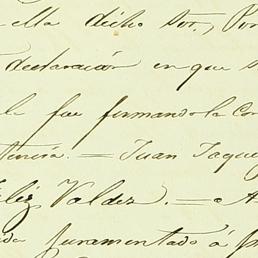 ella dicho Sor., Por
declaración en que s
la fue firmandola Con
tencia. = Juan Jaque
eliz Valdez. =
da juramentado á p